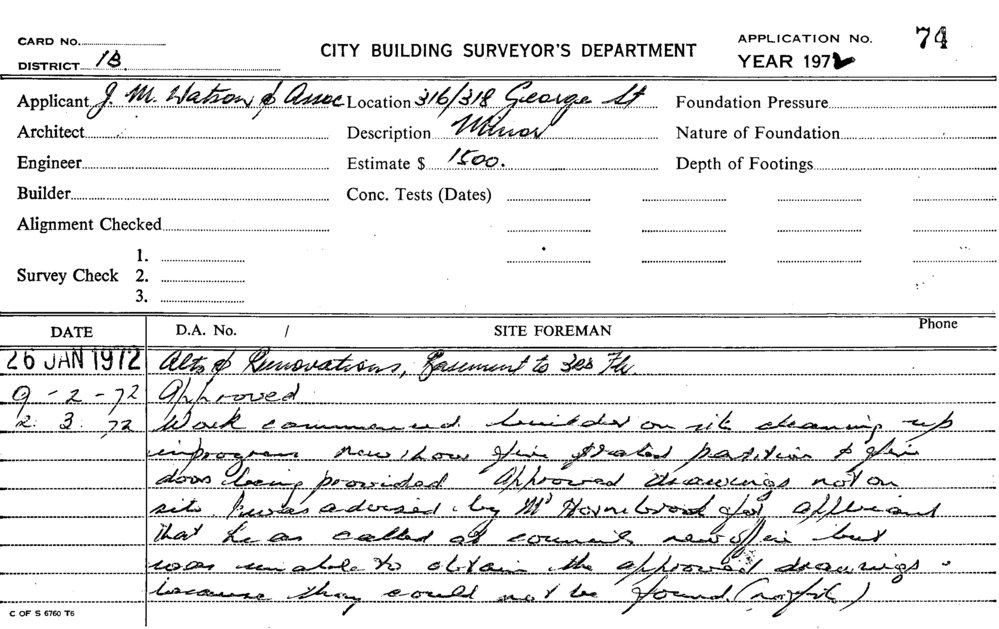 CARD No.
DISTRICT 1B
CITY BUILDING SURVEYOR'S DEPARTMENT
APPLICATION No. 74
YEAR 1972
Applicant J. M. Watson & Assoc Location 316/318 George St Foundation Pressure
Architect Description Minor Nature of Foundation
Engineer Estimate $ 1500. Depth of Footings
Builder Conc. Tests (Dates)
Alignment Checked
Survey Check 1.
2.
3.
DATE D.A. No. / SITE FOREMAN Phone
26 JAN 1972 Alts & Renovations, Basement to 3rd Flr.
9-2-72 Approved
2. 3. 72 Work commenced builder on site cleaning up
in progress new show fire rated partition & fire
doors being provided Approved drawings not on
site. I was advised by Mr Hornibrook for applicant
that he as called at councils new office but
was unable to obtain the approved drawings
because they could not be found
C OF S 6760 T6